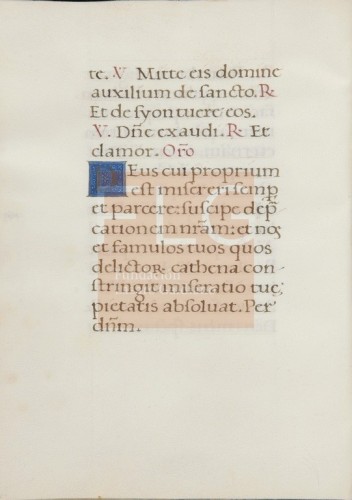 te. V Mitte eis domine
auxilium de sancto. R
Et de syon tuere eos.
V. Dñe exaudi. R Et
clamor. Orõ
Deus cui proprium
est misereri semp
et parcere: suscipe dep̄
cationem nram: et nos
et famulos tuos quos
delictor cathena con-
stringit miseratio tue
pietatis absoluat. Per
dñm.
FLG
Fundación